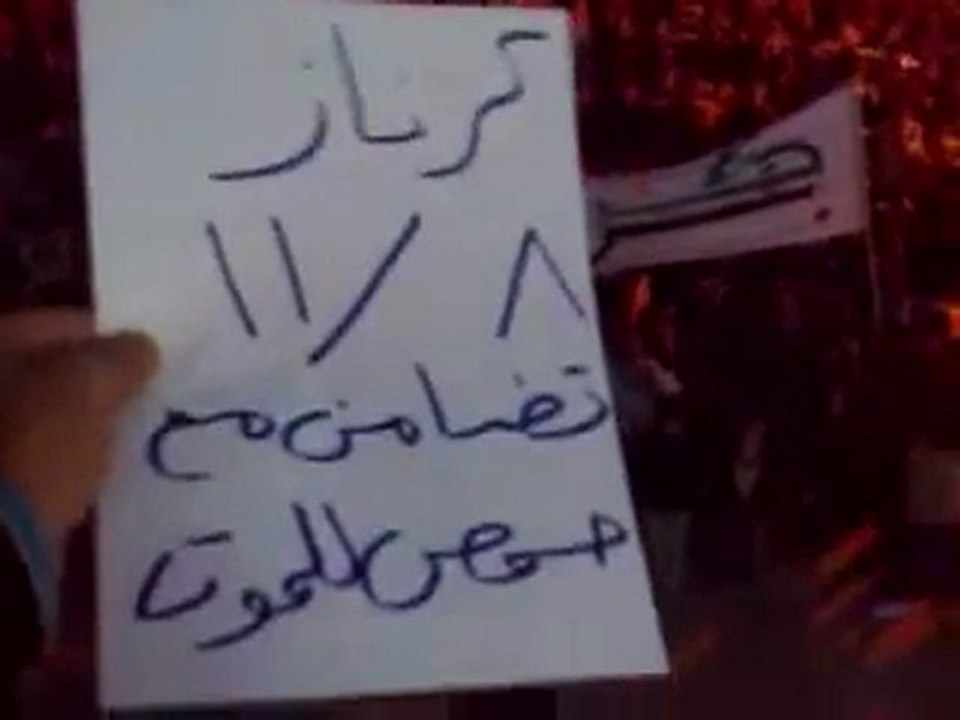 كرناز
٨ / ١١
تضامن مع
حمص للموت